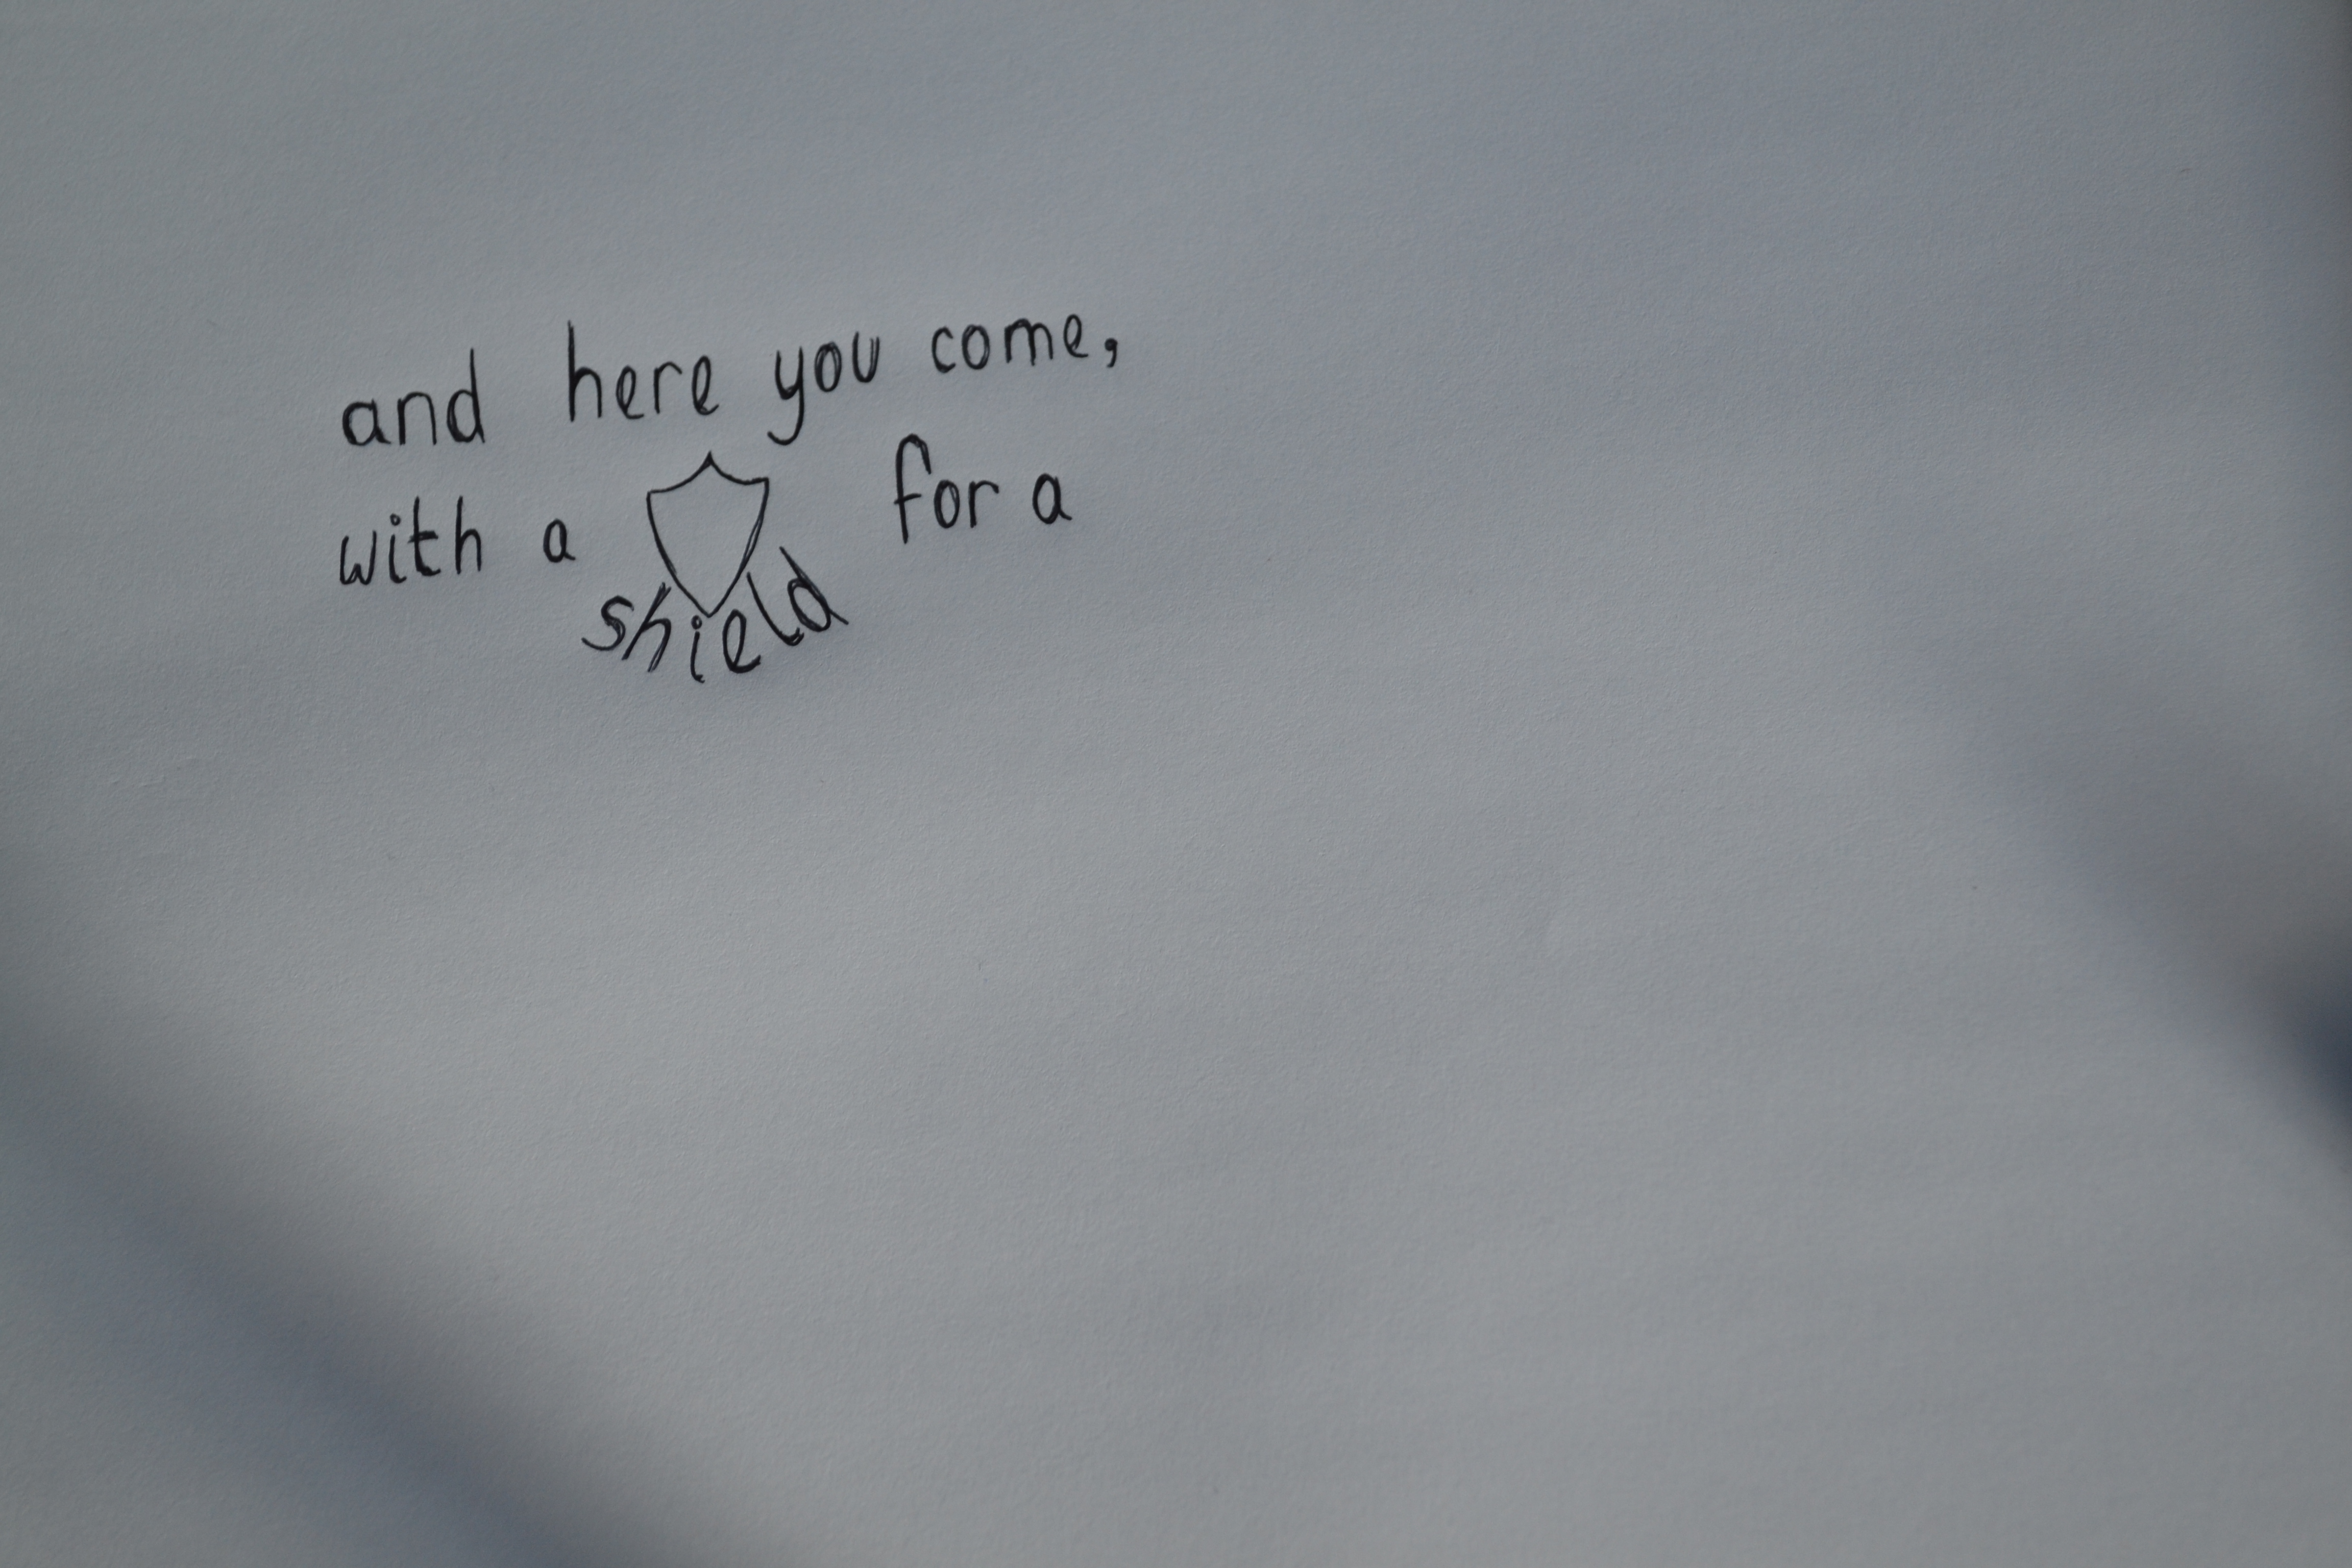 and here you come,
with a for a
shield